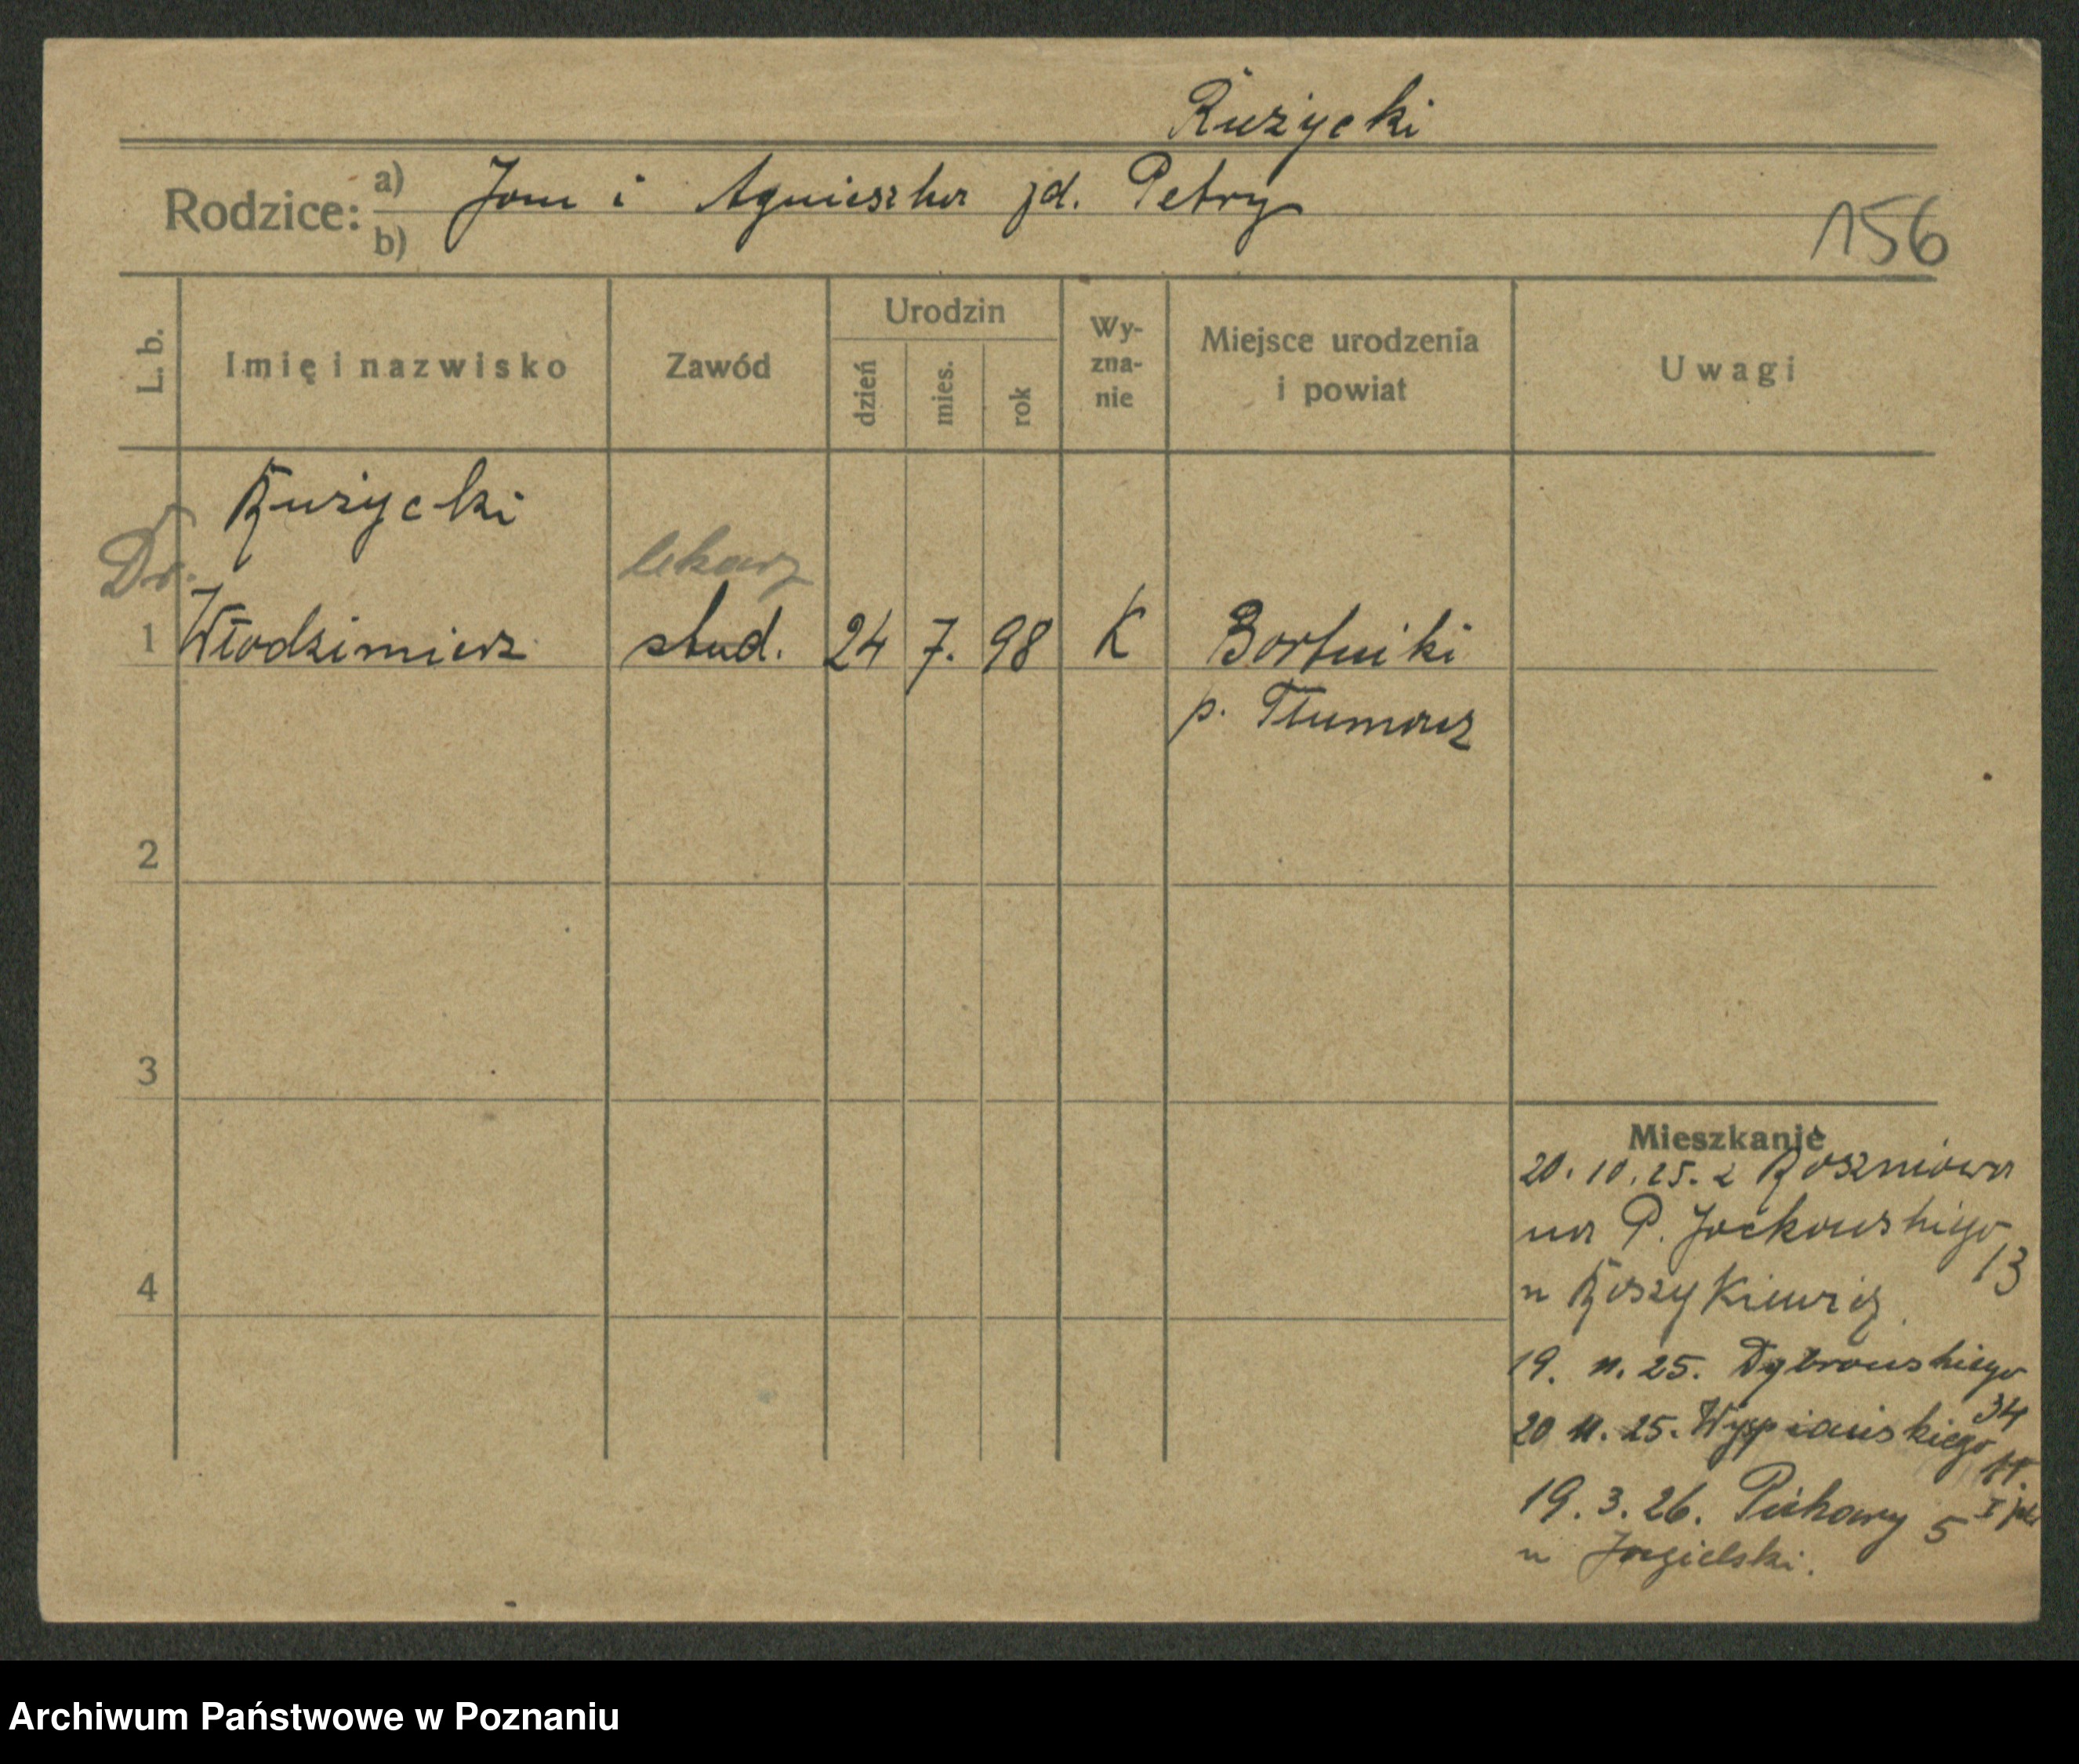 Rużycki
Rodzice: a) Jan i Agnieszka zd. Petry
b)
156
L. b.
Imię i nazwisko
Zawód
Urodzin
dzień
mies.
rok
Wy-
zna-
nie
Miejsce urodzenia
i powiat
Uwagi
Rużycki
Dr. lekarz
1 Włodzimierz stud. 24 7. 98 K Bortniki
p. Tłumacz
2
3
4
Mieszkanie
20. 10. 25. z Roszniowa
na P. Jackowskiego
13
u Koszykiewicz
19. 11. 25. Dąbrowskiego
34
20 11. 25. Wyspiańskiego
19. 3. 26. Piekary 5
u Jagielski.
Archiwum Państwowe w Poznaniu